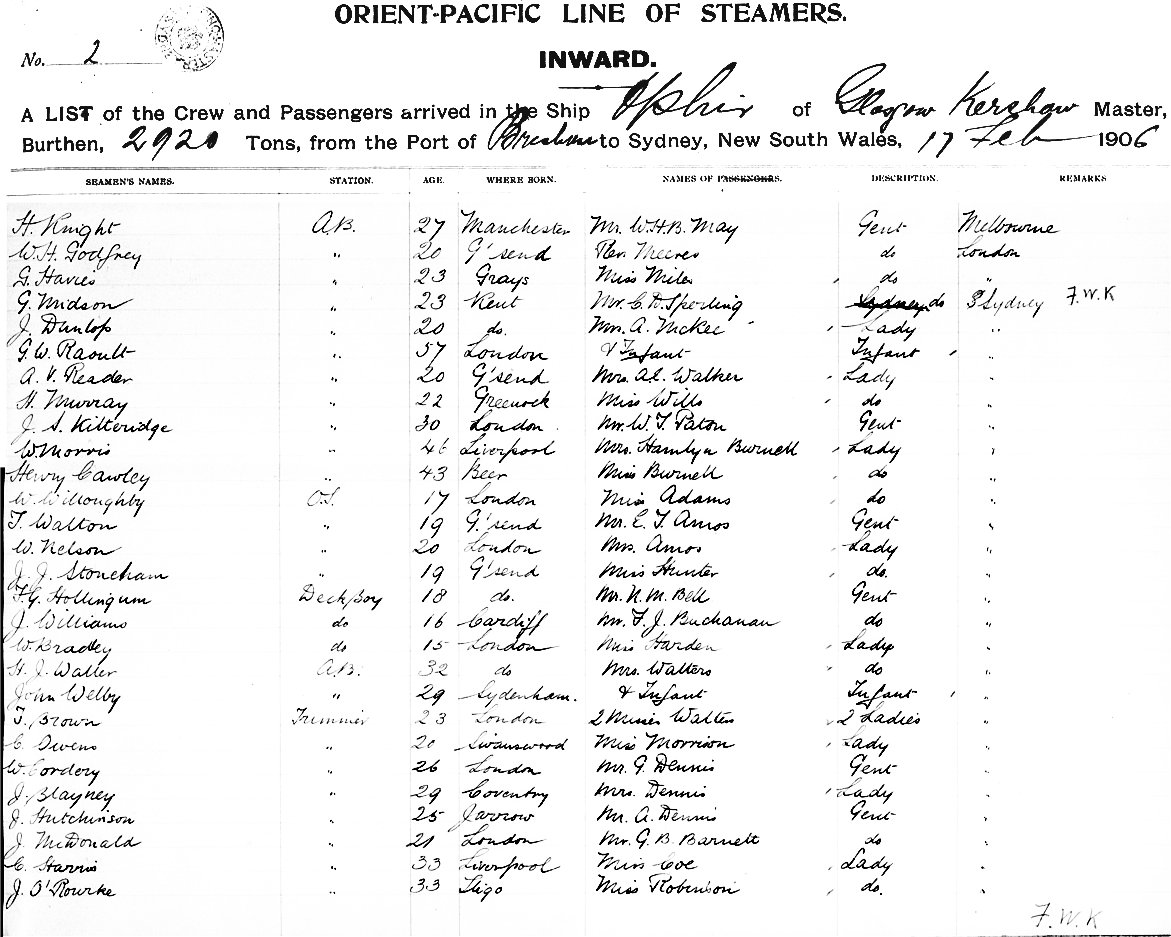 ORIENT-PACIFIC LINE OF STEAMERS.
No. 2
INWARD.
A LIST of the Crew and Passengers arrived in the Ship Ophir of Glasgow Kershaw Master,
Burthen, 2920 Tons, from the Port of Brisbane to Sydney, New South Wales, 17 Feb 1906
SEAMEN'S NAMES. STATION. AGE. WHERE BORN. NAMES OF PASSENGERS. DESCRIPTION. REMARKS
H. Knight A.B. 27 Manchester Mr. W.H.B. May Gent Melbourne
W.H. Godfrey " 20 G'send Rev. Meeres do London
G. Havies " 23 Grays Miss Miles do "
G. Midson " 23 Kent Mr. C. D. Sperling Sydney do Sydney F.W.K
J. Dunlop " 20 do. Mrs. A. McKee " Lady "
G.W. Raoult " 57 London & Infant Infant "
A. V. Reader " 20 G'send Mrs. A.E. Walker Lady "
H. Murray " 22 Greenock Miss Wills do "
J. S. Kilteridge " 30 London Mr. W. T. Paton Gent "
W. Morris " 46 Liverpool Mrs. Hamlyn Burnell Lady "
Henry Cawley " 43 Beer Miss Burnell do "
W. Willoughby O.S. 17 London Miss Adams do "
T. Walton " 19 G'send Mr. E. T. Amos Gent "
W. Nelson " 20 London Mrs. Amos Lady "
J. J. Stoneham " 19 G'send Miss Hunter do. "
F.G. Hollingum Deck Boy 18 do. Mr. N. M. Bell Gent "
J. Williams do 16 Cardiff Mr. F. J. Buchanan do "
W. Bradley do 15 London Miss Harden Lady "
H. J. Waller A.B. 32 do Mrs. Walters do "
John Welby " 29 Sydenham. & Infant Infant "
T. Brown Trimmer 23 London 2 Misses Walters 2 Ladies "
C. Owens " 20 Miss Morrison Lady "
W. Cordery " 26 London Mr. G. Dennis Gent "
J. Blayney " 29 Coventry Mrs. Dennis Lady "
J. Hutchinson " 25 Jarrow Mr. A. Dennis Gent "
J. McDonald " 21 London Mr. G. B. Barnett do "
C. Harris " 33 Liverpool Miss Coe Lady "
J. O'Rourke " 33 Sligo Miss Robinson do. "
F.W.K